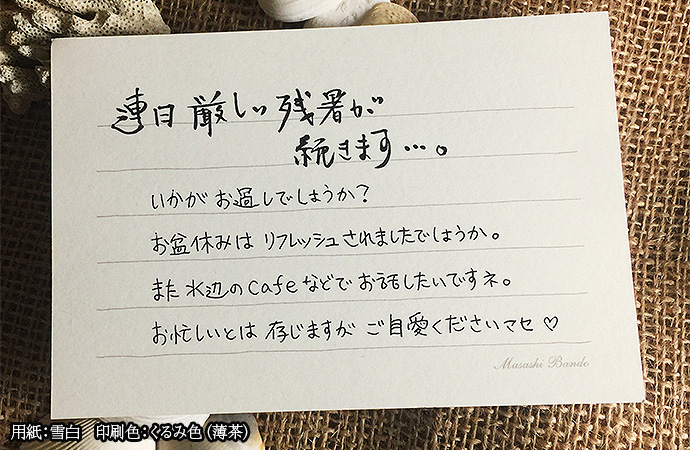 連日厳しい残暑が
続きます…。
いかがお過しでしょうか?
お盆休みは リフレッシュされましたでしょうか。
また水辺のcafeなどでお話したいですネ。
お忙しいとは 存じますが ご自愛くださいマセ♡
Masashi Bando
用紙:雪白 印刷色:くるみ色(薄茶)